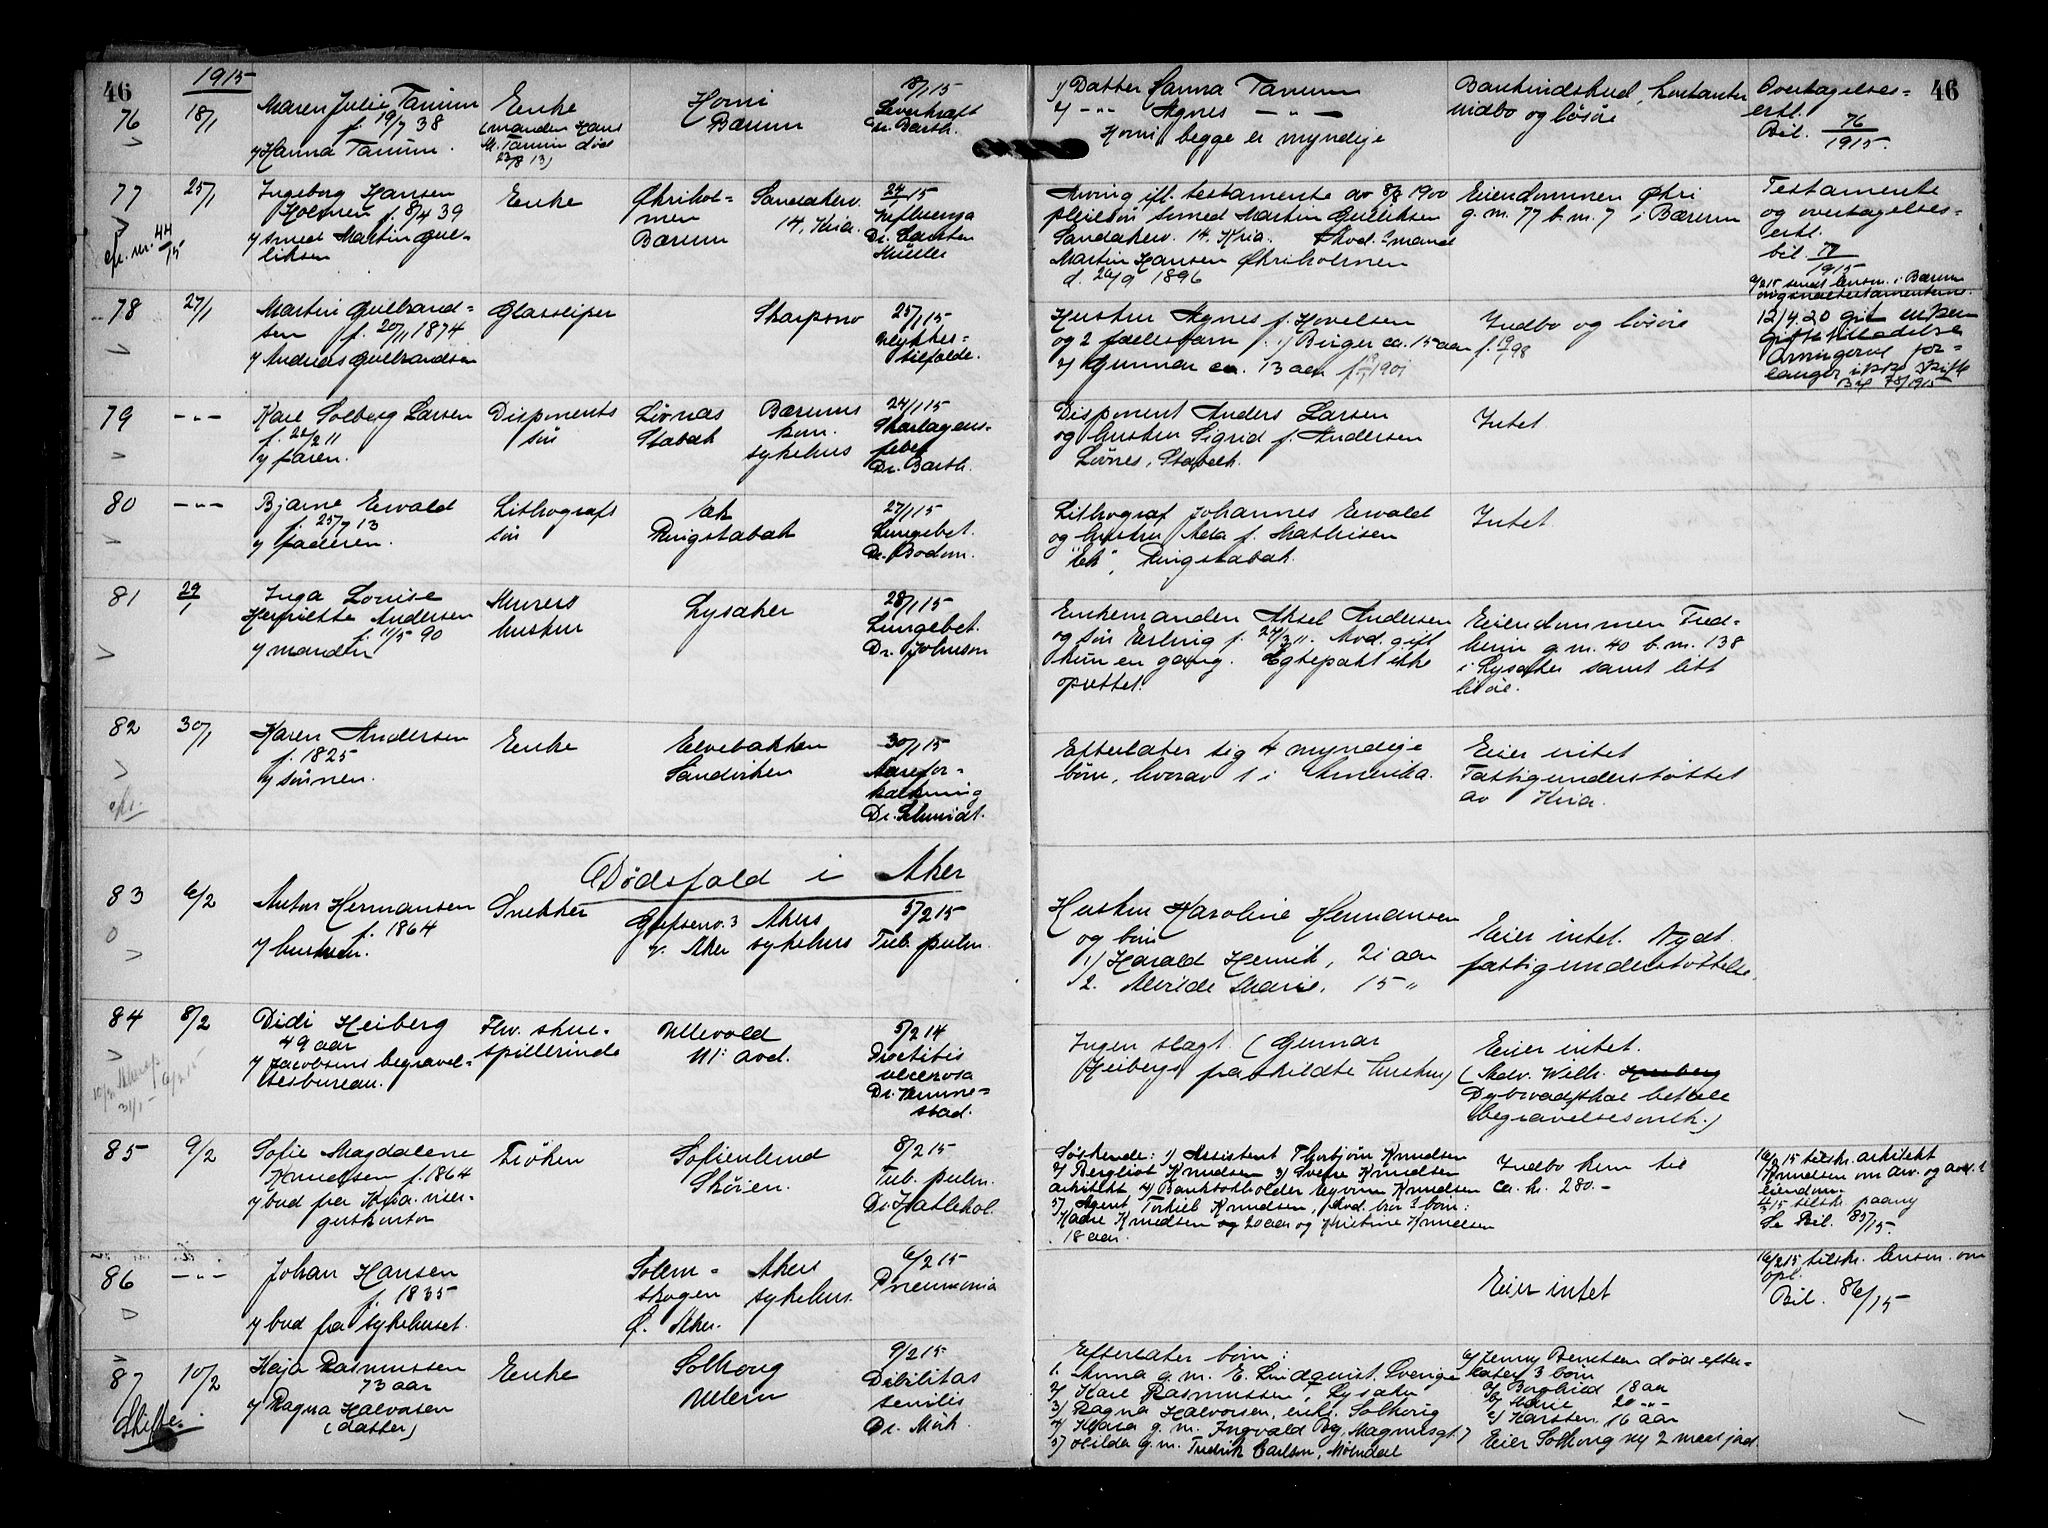 46
1915
46
76
18/1
Maren Julie Tanum
f. 19/7 38
v/ Hanna Tanum.
Enke
(manden Hans
M. Tanum død
13)
Horni
Bærum
18/1 15
Dr. Barth.
1/ Datter Hanna Tanum
2/ -"- Agnes -"-
Horni, begge er myndige
Bankindskud, kontanter
indbo og løsøre
Overtagelses=
erkl.
Bil. 76/1915.
77
25/1
efr. nr. 44/15
Ingeborg Hansen
Holmen f. 8/4 39
v/ smed Martin Gul=
liksen
Enke
Økrihol=
men
Bærum
Sandakerv.
14, Kria.
24/1 15
Influenza
Dr. Carsten
Müller
Arving ifl. testamente av 8/8 1900
pleiesøn smed Martin Gulliksen
Sandakerv. 14. Kria. Avd. mand
Martin Hansen Økriholmen
d. 26/9 1896
Eiendommen Økri
g. nr. 77 b. nr. 7 i Bærum
Testamente
og overtagelses=
erkl.
bil. 77/1915
sendt lensm. i Bærum
originaltestamentene.
78
27/1
Martin Gulbrand=
sen f. 20/11 1874
v/ Andreas Gulbrandsen
Glassliper
Skarpsno
25/1 15
Ulykkes=
tilfælde.
Hustru Agnes f. Hovelsen
og 2 fællesbarn f. 1/ Birger ca. 15 aar f. 98
2/ Gunnar ca. 13 aar f. 1901
Indbo og løsøre
12/4 20 git uskpen
giftetilladelse
Arvingerne for=
langer ikke skifte
Bil 78/1915
79
-"-
Kaare Solberg Larsen
f. 22/2 11
v/ faren.
Disponents
søn
Løvnæs
Stabæk
Bærums
kom.
sykehus
24/1 15
Skarlagens=
feber
Dr. Barth.
Disponent Anders Larsen
og hustru Sigrid f. Andersen
Løvnes, Stabekk.
Intet.
80
-"-
Bjarne Ewald
f. 25/7 13
v/ faderen.
Lithografs
søn
Ek
Ringstabæk
27/1 15
Lungebet.
Dr. Bodom.
Lithograf Johannes Ewald
og hustru Asta f. Mathisen
"Ek", Ringstabæk.
Intet.
81
29/1
Inga Louise
Henriette Andersen
f. 11/5 90
v/ manden
Murers
hustru
Lysaker
28/1 15
Lungebet.
Dr. Johnson
Enkemanden Aksel Andersen
og søn Erling f. 27/3 11. Avd. gift
kun en gang. Egtepakt ikke
oprettet.
Eiendommen Fred=
heim g. nr. 40 b. nr. 138
i Lysaker samt litt
løsøre.
82
30/1
efr.
Karen Andersen
f. 1825
v/ sønnen.
Enke
Elvebakken
Sandviken
30/1 15
Aarefor=
kalkning
Dr. Schmidt.
Efterlater sig 4 myndige
børn, hvorav 1 i Amerika.
Eier intet
Fattigunderstøttet
av Kria.
Dødsfald i Aker
83
6/2
Anton Hermansen
f. 1864
v/ hustruen.
Snekker
Grefsenv. 3
v. Aker
Akers
sykehus
5/2 15
Tub. pulm.
Hustru Karoline Hermansen
og børn
1/ Harald Henrik, 21 aar
2. Alvilde Marie, 15 "
Eier intet. Nydt
fattigunderstøttelse.
84
8/2
Didi Heiberg
49 aar
v/ Jacobsens begravel=
sesbureau.
Fhv. skue=
spillerinde
Ullevold
III avd.
5/2 14
Proctitis
ulcerosa
Dr. Unne=
stad.
Ingen slegt (Gunnar
Heibergs fraskildte hustru)
Eier intet.
(Adv. Wilh.
Dybwad skal betale
begravelsesomk.)
85
9/2
Sofie Magdalene
Knudsen f. 1864
v/ bud fra Kria. vier=
guskontor
Frøken
Sofienlund
Skøien.
8/2 15
Tub. pulm.
Dr. Hatlehol.
Søskende: 1/ Assistent Thorbjørn Knudsen
2/ Bergliot Knudsen 3/ Sverre Knudsen
arkitekt 4/ Bankbokholder Eyvinn Knudsen
5/ Agent Torkiel Knudsen, Avd. bror 2 børn:
Kaare Knudsen 20 aar og Kristine Knudsen
18 aar.
Indbo kun til
ca. kr. 280.-
16/2 15 tilskr. arkitekt
Knudsen om arv. og avd.s
eiendom.
4/5 15 tilskr. paany
Se Bil. 85/15.
86
-"-
Johan Hansen
f. 1835
v/ bud fra sykehuset.
Solem=
skogen
Ø. Aker.
Akers
sykehus.
6/2 15
Pneumonia
Eier intet
16/2 15 tilskr. lensm. om
opl.
Bil. 86/15
87
10/2
Skifte.
Kaja Rasmussen
73 aar
v/ Ragna Halvorsen
(datter)
Enke
Solhoug
Ullern
9/2 15
Debilitas
senilis
Dr. Mørk
Efterlater børn:
1. Anna g. m. E. Lindquist, Sverige
2/ Karl Rasmussen, Lysaker
3/ Ragna Halvorsen, enke. Solhoug
4/ Klara g. m. Ingvald By, Magnusgt. 7
5/ Hilda g. m. Fredrik Carlsen, Mølndal
6/ Jenny Berntsen død efter=
later 3 børn
a/ Borghild 18 aar
b/ Marie 20 -"-
c/ Karsten 16 aar
Eier Solhoug og 2 maal jord.